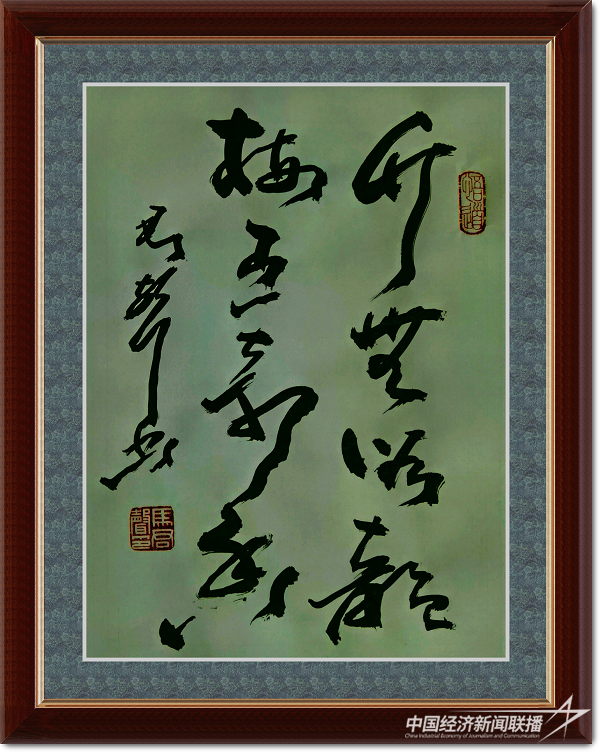 悟道
竹無俗韻
梅有奇香
君聲书
馬君聲印
中国经济新闻联播
China Industrial Economy of Journalism and Communication